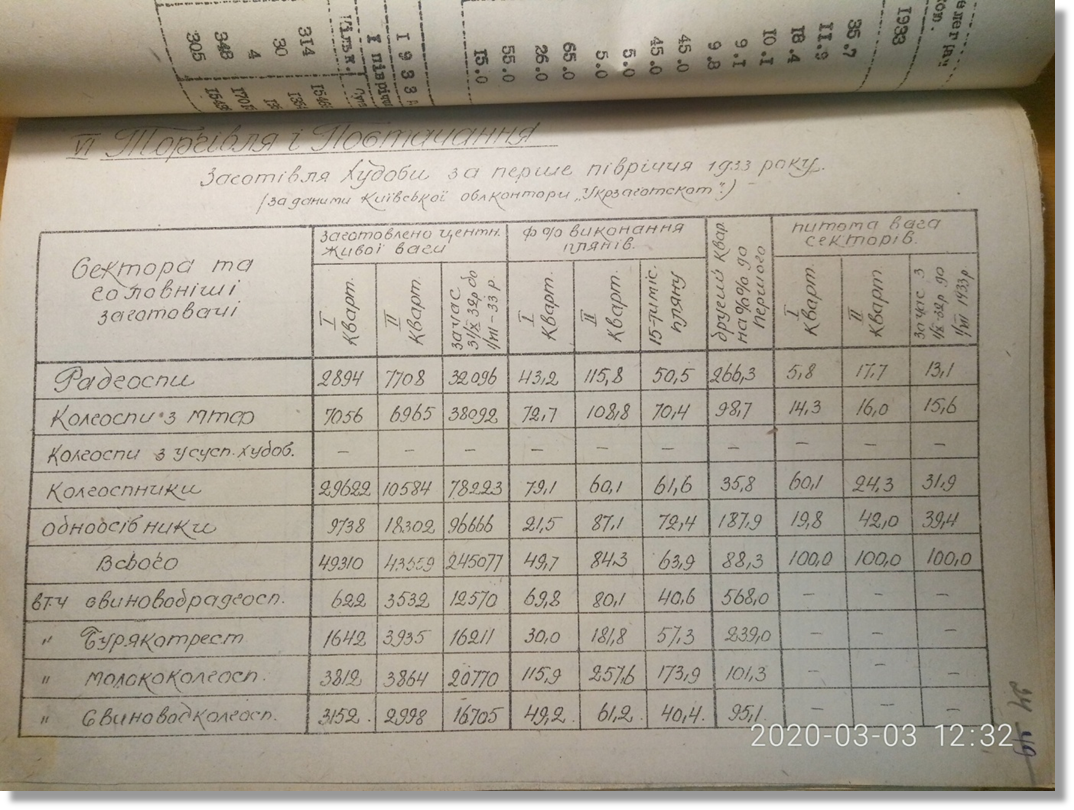 1933
35.7
11.9
18.4
10.1
9.1
9.8
45.0
45.0
5.0
5.0
65.0
26.0
55.0
15.0
1933
I півріч
Кільк.
314
30
4
348
305
VI Торгівля і Постачання
Заготівля худоби за перше півріччя 1933 року.
(за даними Київської облконтори „Укрзаготскот".)
Сектора та головніші заготовачі
Заготовлено центн. живої ваги
ф % виконання плянів.
другий квар на %% до першого
питома вага секторів.
I Кварт.
II Кварт.
за час 31/X 32р до 1/VII-33 р
I Кварт.
II Кварт.
15-ти міс. пляну
I Кварт.
II Кварт
За час з 1/X-32р до 1/VII 1933р
Радгоспи 2894 7708 32096 43,2 115,8 50,5 266,3 5,8 17.7 13,1
Колгоспи з МТФ 7056 6965 38092 72,7 108,8 70,4 98,7 14,3 16,0 15,6
Колгоспи з усусп. худоб. – – – – – – – – – –
Колгоспники 29622 10584 78223 79,1 60,1 61,6 35,8 60,1 24,3 31,9
Одноосібники 9738 18302 96666 21,5 87,1 72,4 187,9 19,8 42,0 39,4
Всього 49310 43559 245077 49,7 84,3 63,9 88,3 100,0 100,0 100,0
вт.ч свиноводрадгосп. 622 3532 12570 69,8 80,1 40,6 568,0 – – –
" Бурякотрест 1642 3935 16211 30,0 181,8 57,3 239,0 – – –
" молококолгосп. 3812 3864 20770 115,9 257,6 173,9 101,3 – – –
" Свиноводколгосп. 3152. 2998 16705 49,2 61,2 40,4. 95,1 – – –
2020-03-03 12:32